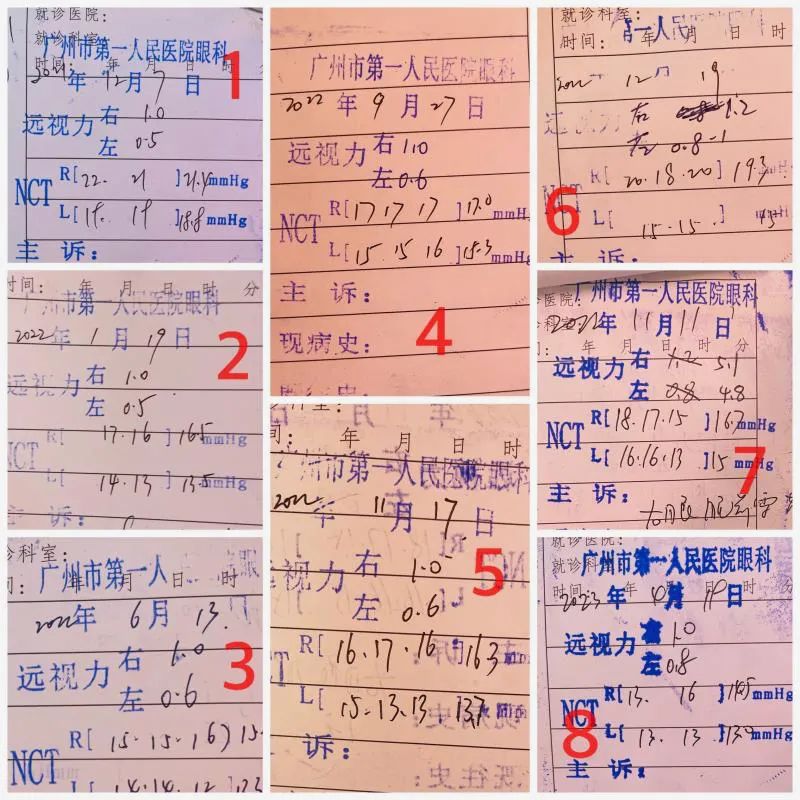 就诊医院:
就诊科室:
广州市第一人民医院眼科
时间: 年 月 日 时
2021年12月7日
1
远视力 右 1.0
左 0.5
NCT R[22. 21 ]21.4mmHg
L[19. 19 ]18.8mmHg
主 诉:
时间: 年 月 日 时 分
广州市第一人民医院眼科
2022年1月19日
2
远视力 右 1.0
左 0.5
NCT R[ 17.16 ]16.5mmHg
L[ 14.13 ]13.5mmHg
主 诉:
诊科室:
广州市第一人
年 月 日 时
2022年6月13.
3
远视力 右 1.0
左 0.6
NCT R[15-15-16)15
L[14.14.12]
广州市第一人民医院眼科
2022年9月27日
远视力 右 1.0
左 0.6
NCT R[17 17 17 ]17.0mmHg
L[15 15 16 ]15.3mmHg
主 诉:
现病史:
4
年 月 日 时
广州市第一人民医院眼科
2022年11月17日
5
远视力 右 1.0
左 0.6
NCT R[16.17.16 16.3mm
L[15-13.13 13.7
诉:
既往史:
就诊科室:
时间: 年 月 日 时
2022 12月19
远视力 右 1.2
左 0.8-1
6
NCT R[20.18.20]19.3
L[15-15.] 15
诊医院:
广州市第一人民医院眼科
2022年11月11日
年 月 日 时 分
远视力 右 1.2 5.1
左 0.8 4.8
NCT R[18.17.15 ]16.7mmHg
L[16.16.13 ]15mmHg
7
主 诉:
右眼
就诊医院:
就诊科室:
广州市第一人民医院眼科
时间: 年 月 日 时
2023年4月19日
远视力 右 1.0
左 0.8
NCT R[13. 16 ]14.5mmHg
8
L[13. 13 ]13.0mmHg
主 诉: